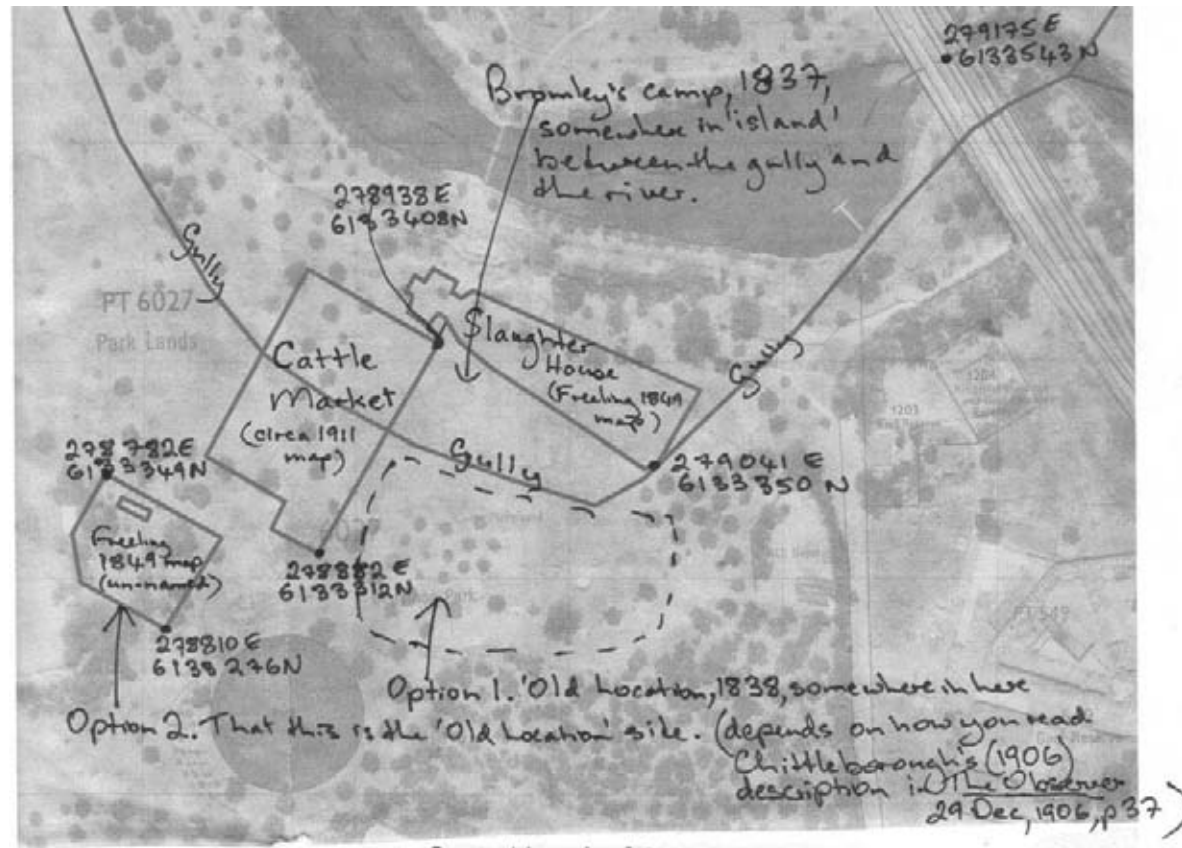 279175 E
6133543 N
Bromley's camp, 1837,
somewhere in 'island'
between the gully and
the river.
278938 E
6133408N
Gully
PT 6027
Park Lands
Cattle
Market
(circa 1911
map)
Slaughter
House
(Freeling 1849
map)
Gully
1204
1203
278782E
6133349N
Gully
279041 E
6133350 N
Freeling
1849 map
(un-named)
278882 E
6133312N
PT 549
278810 E
6133276N
Option 1. 'Old Location, 1838, somewhere in here
Option 2. That this is the 'Old Location' site.
(depends on how you read
Chittleborough's (1906)
description in The Observer
29 Dec, 1906, p37)